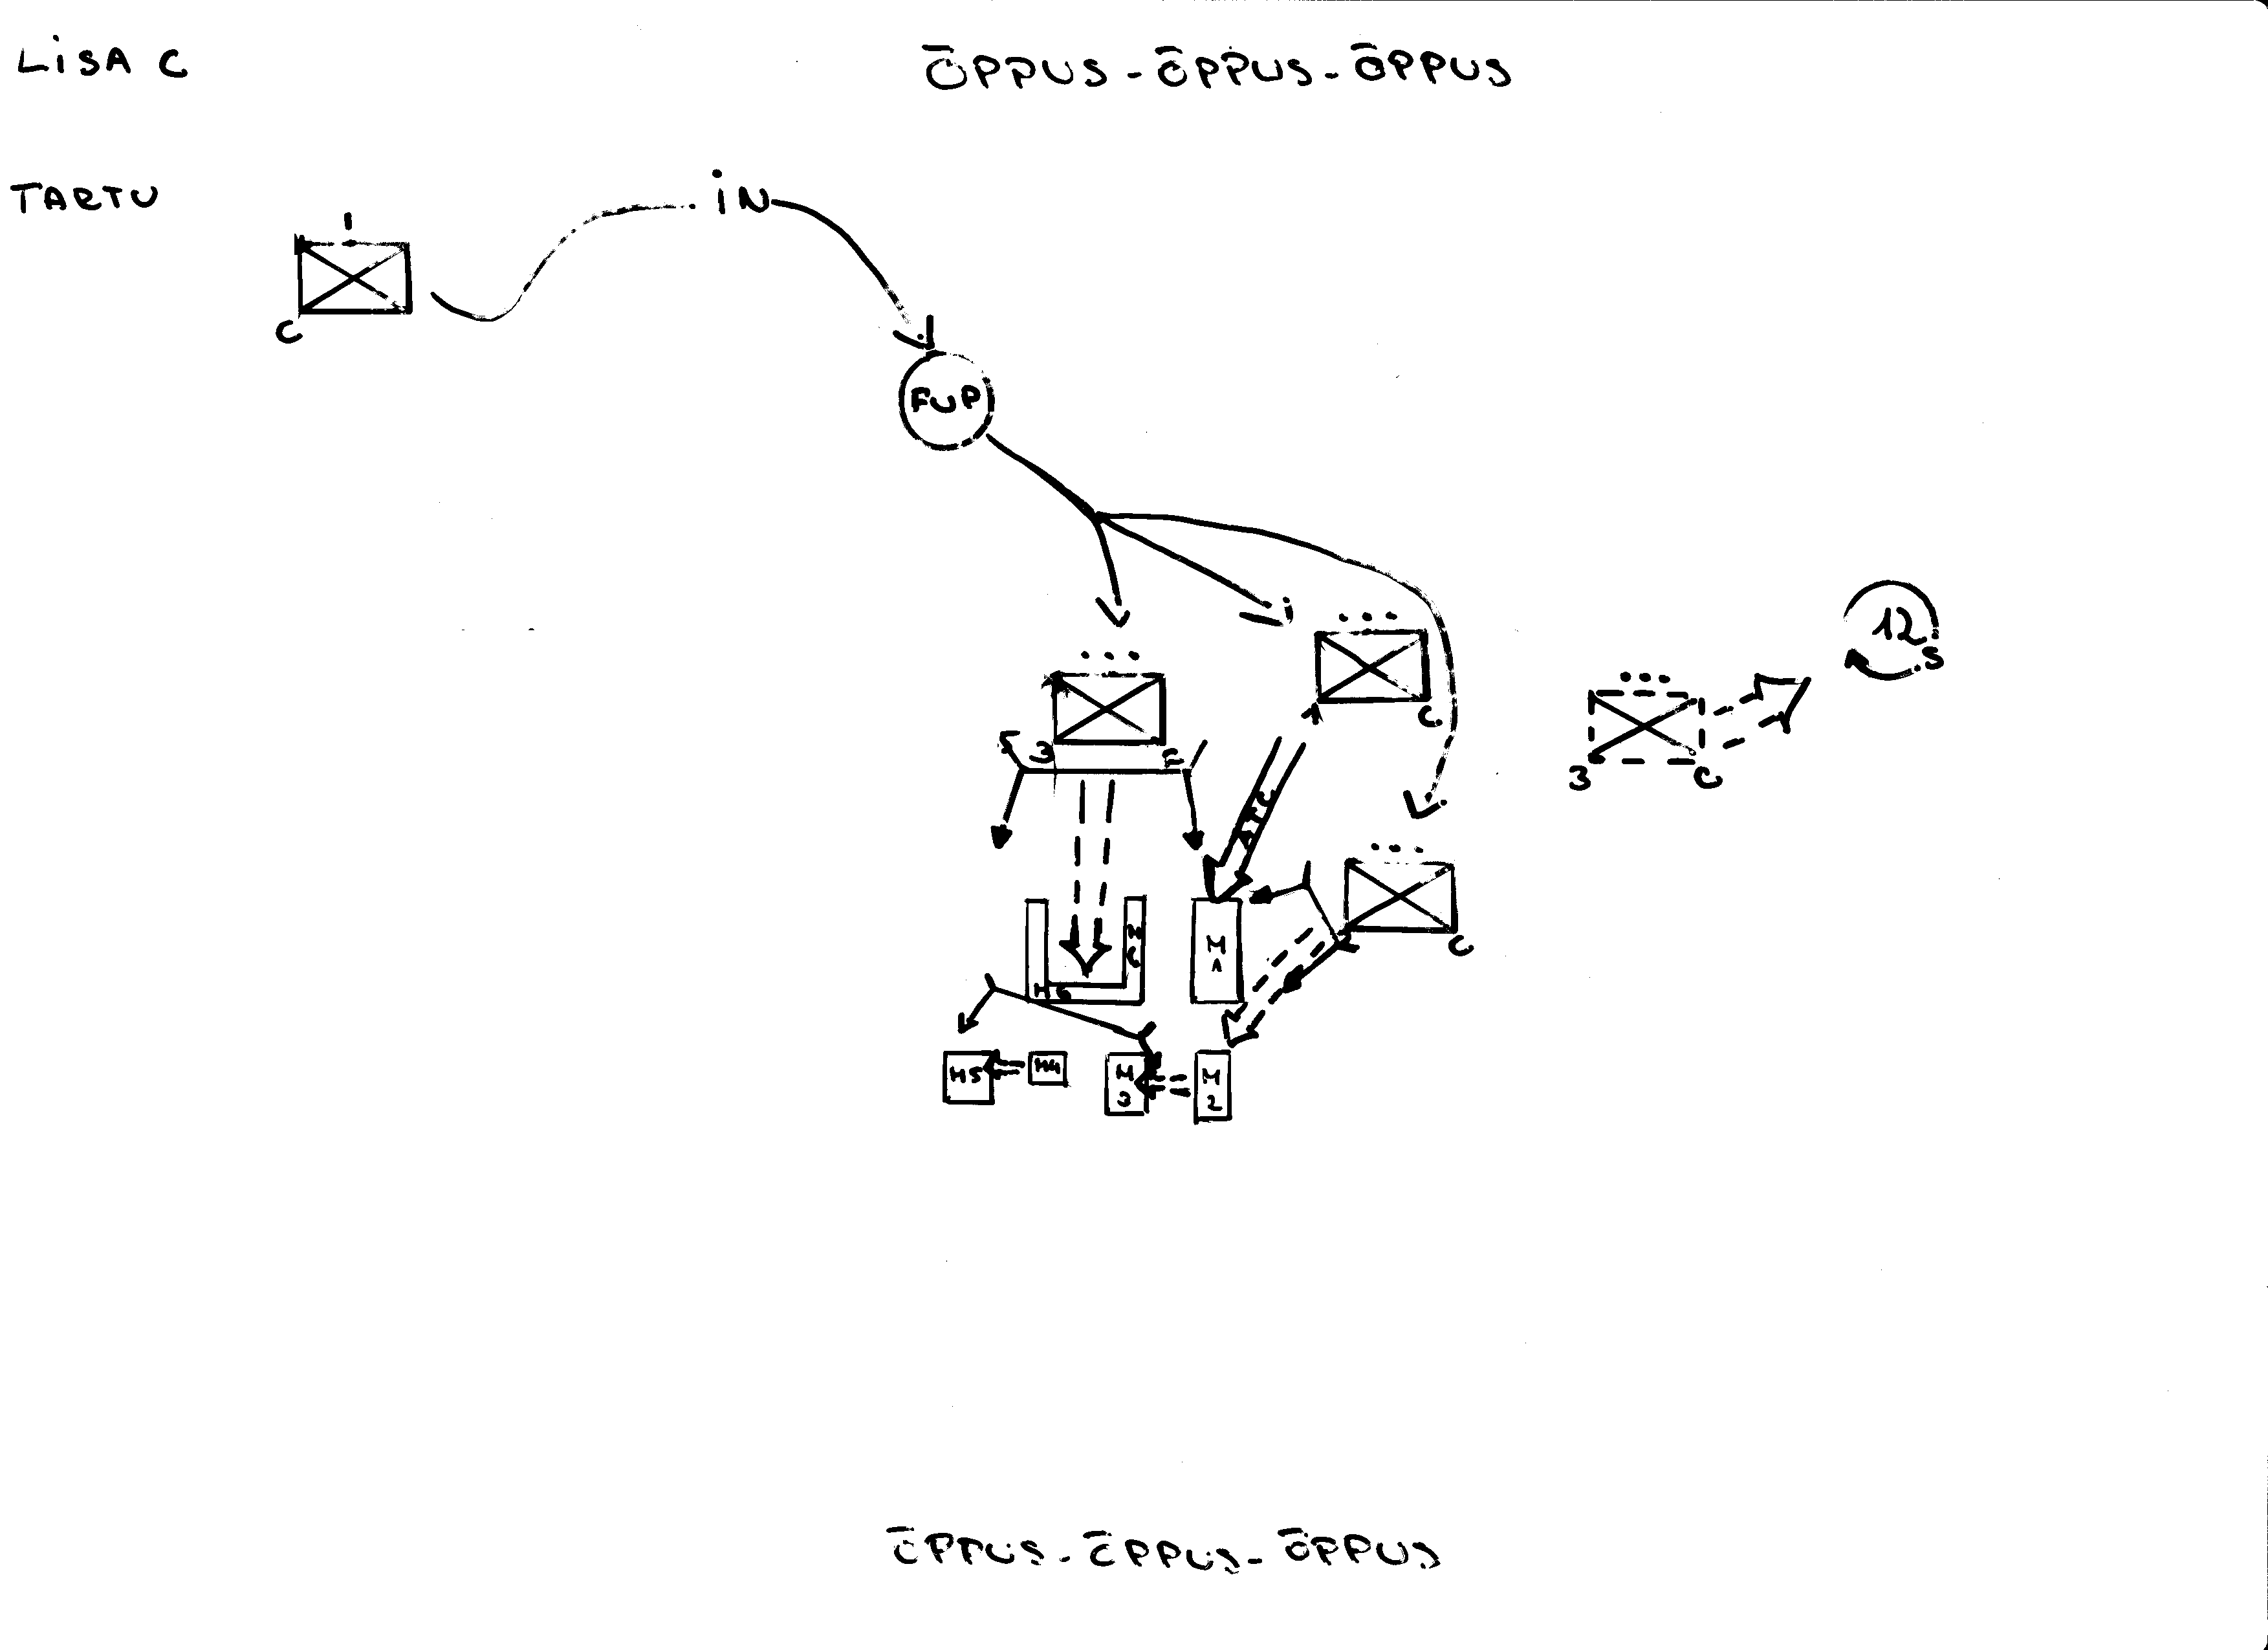 LiSA C
ÕPPUS - ÕPPUS - ÕPPUS
TARTU
iN
C
FUP
12
S
1
C
3
3
C
C
M
1
M6
M5
M4
M
3
M
2
ÕPPUS - ÕPPUS - ÕPPUS